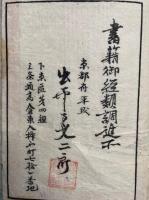 書籍御経類調進所
京都府平民
出雲寺文二郎
下京区第四組
三条通高倉東入桝屋町七拾七番地